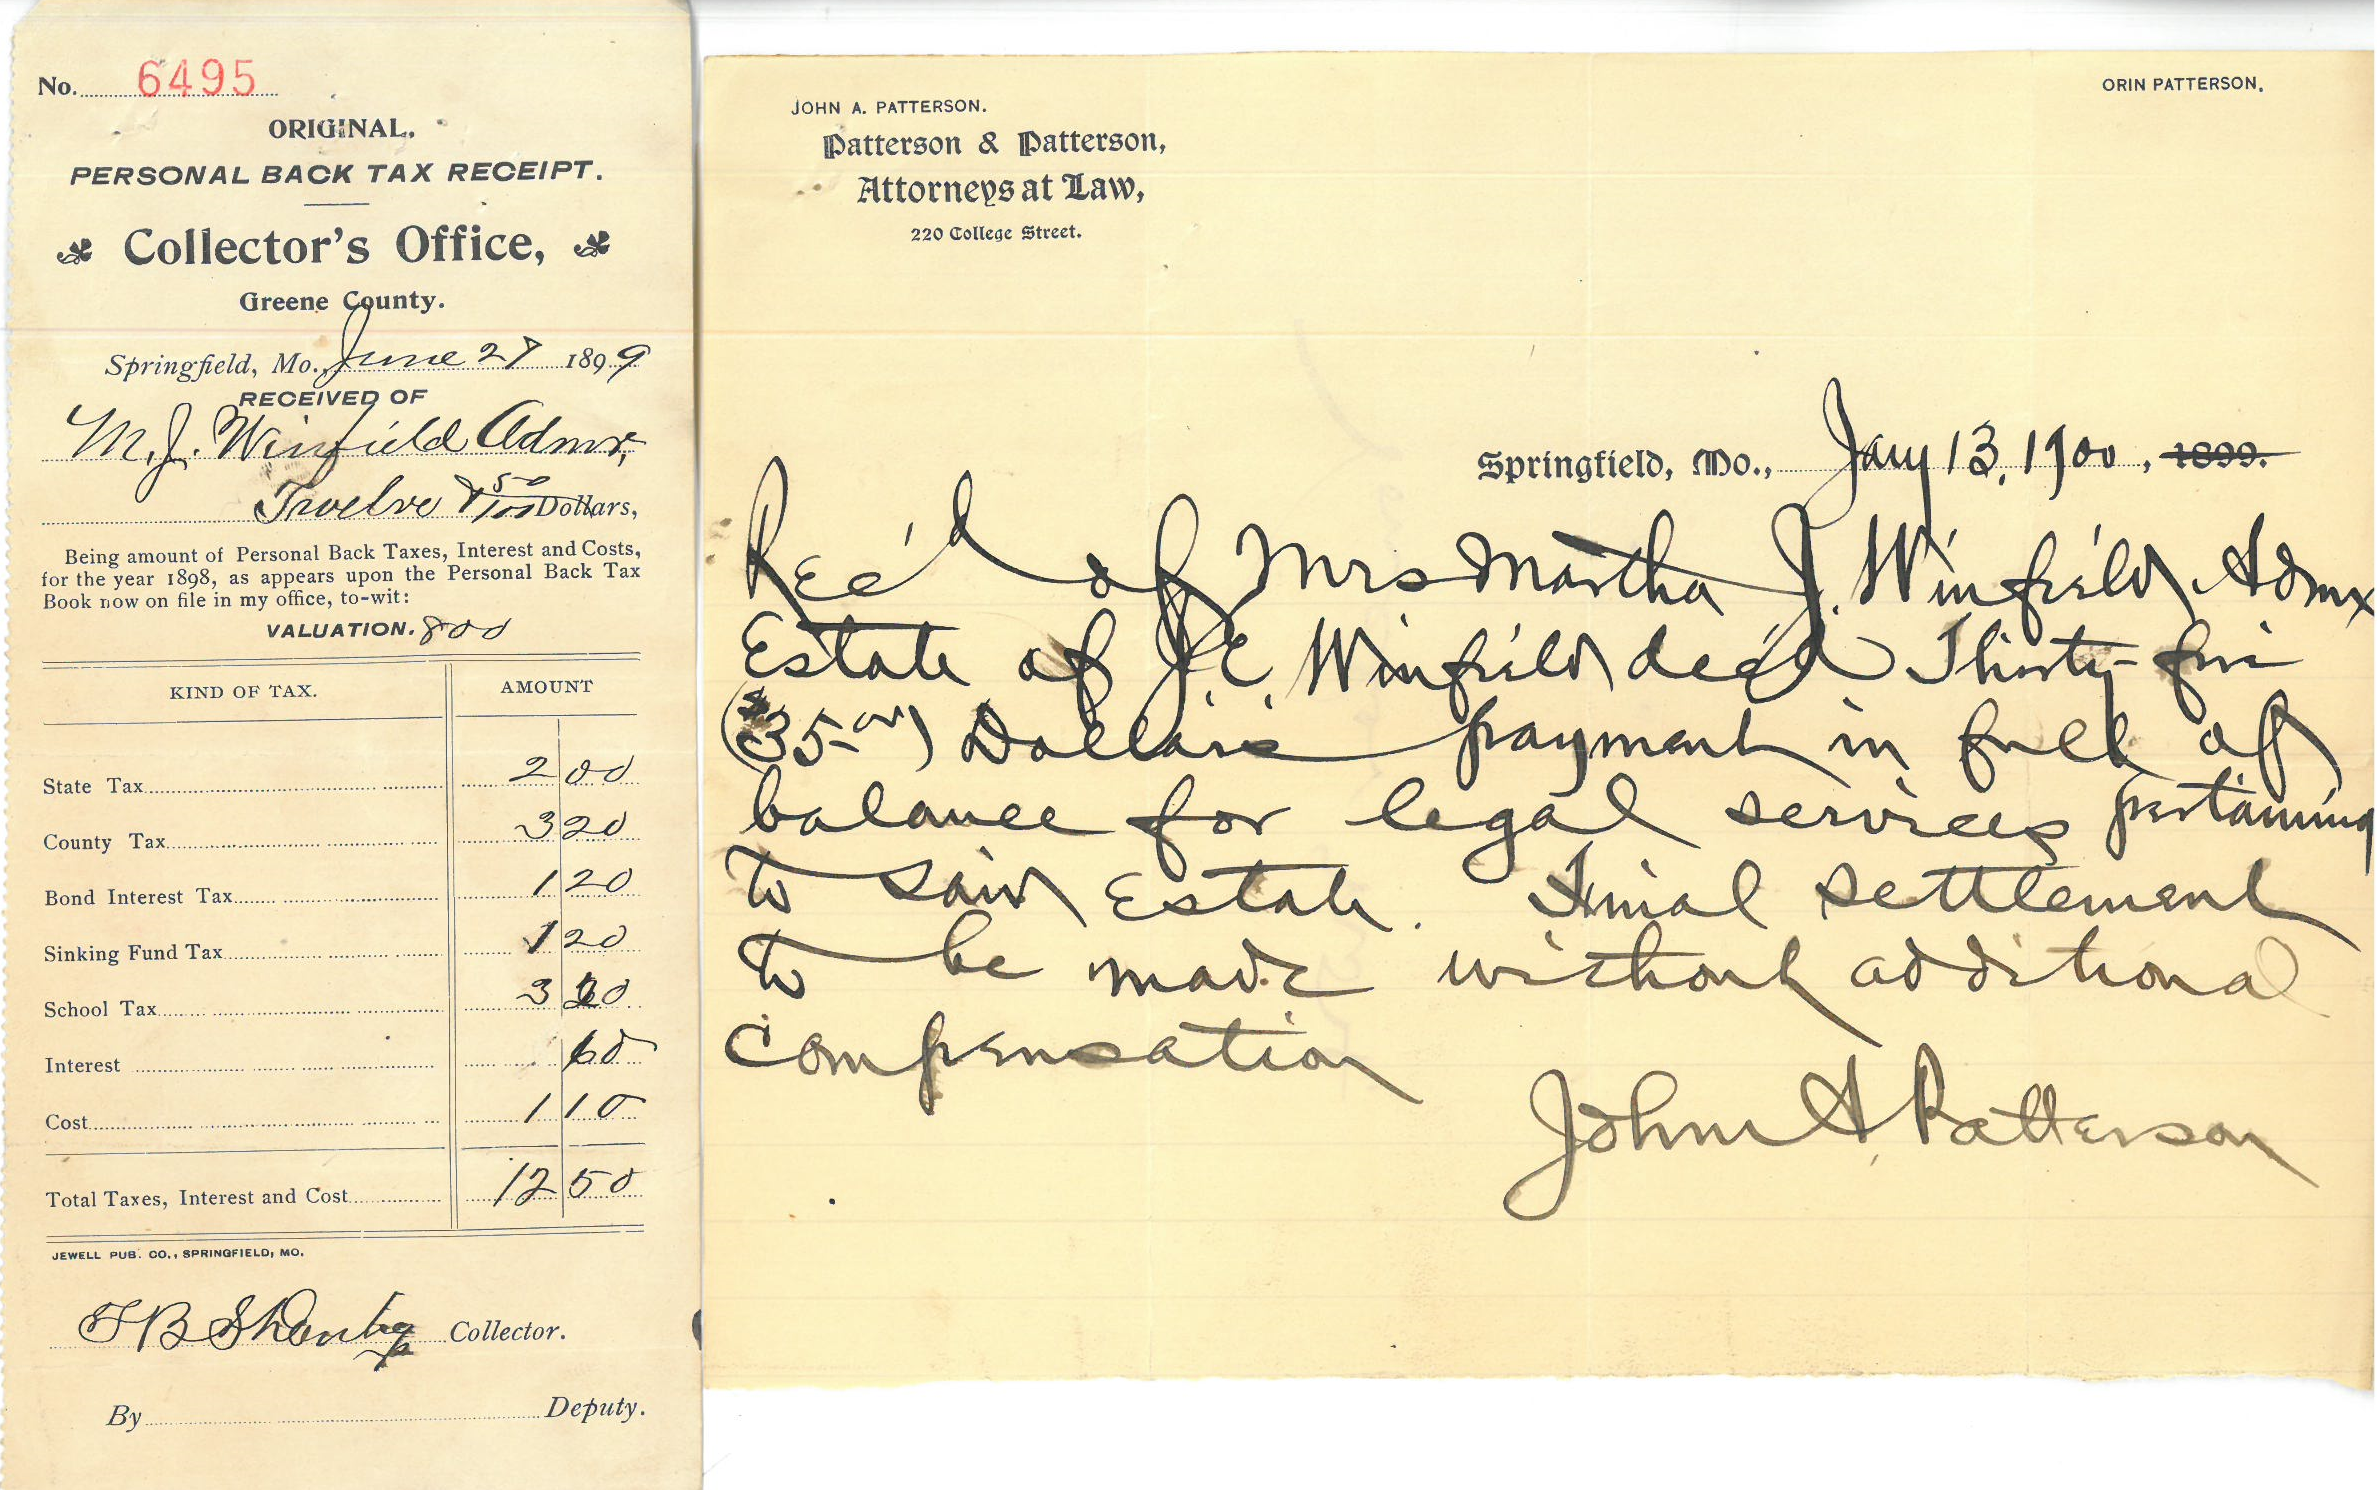 No. 6495
ORIGINAL.
PERSONAL BACK TAX RECEIPT.
Collector's Office,
Greene County.
Springfield, Mo., June 27 1899
RECEIVED OF
M. J. Winfield Admx,
Twelve & 50/100 Dollars,
Being amount of Personal Back Taxes, Interest and Costs,
for the year 1898, as appears upon the Personal Back Tax
Book now on file in my office, to-wit:
VALUATION. 800
KIND OF TAX. AMOUNT
State Tax 2 00
County Tax 3 20
Bond Interest Tax 1 20
Sinking Fund Tax 1 20
School Tax 3 20
Interest 60
Cost 1 10
Total Taxes, Interest and Cost 12 50
JEWELL PUB. CO., SPRINGFIELD, MO.
F B Collector.
By Deputy.
JOHN A. PATTERSON. ORIN PATTERSON.
Patterson & Patterson,
Attorneys at Law,
220 College Street.
Springfield, Mo., Jany 13, 1900, 1899.
Rec'd of Mrs Martha J. Winfield Admx
Estate of J. E. Winfield dec'd Thirty-five
($35.00) Dollars payment in full of
balance for legal services pertaining
to said Estate. Final settlement
to be made without additional
compensation
John A. Patterson